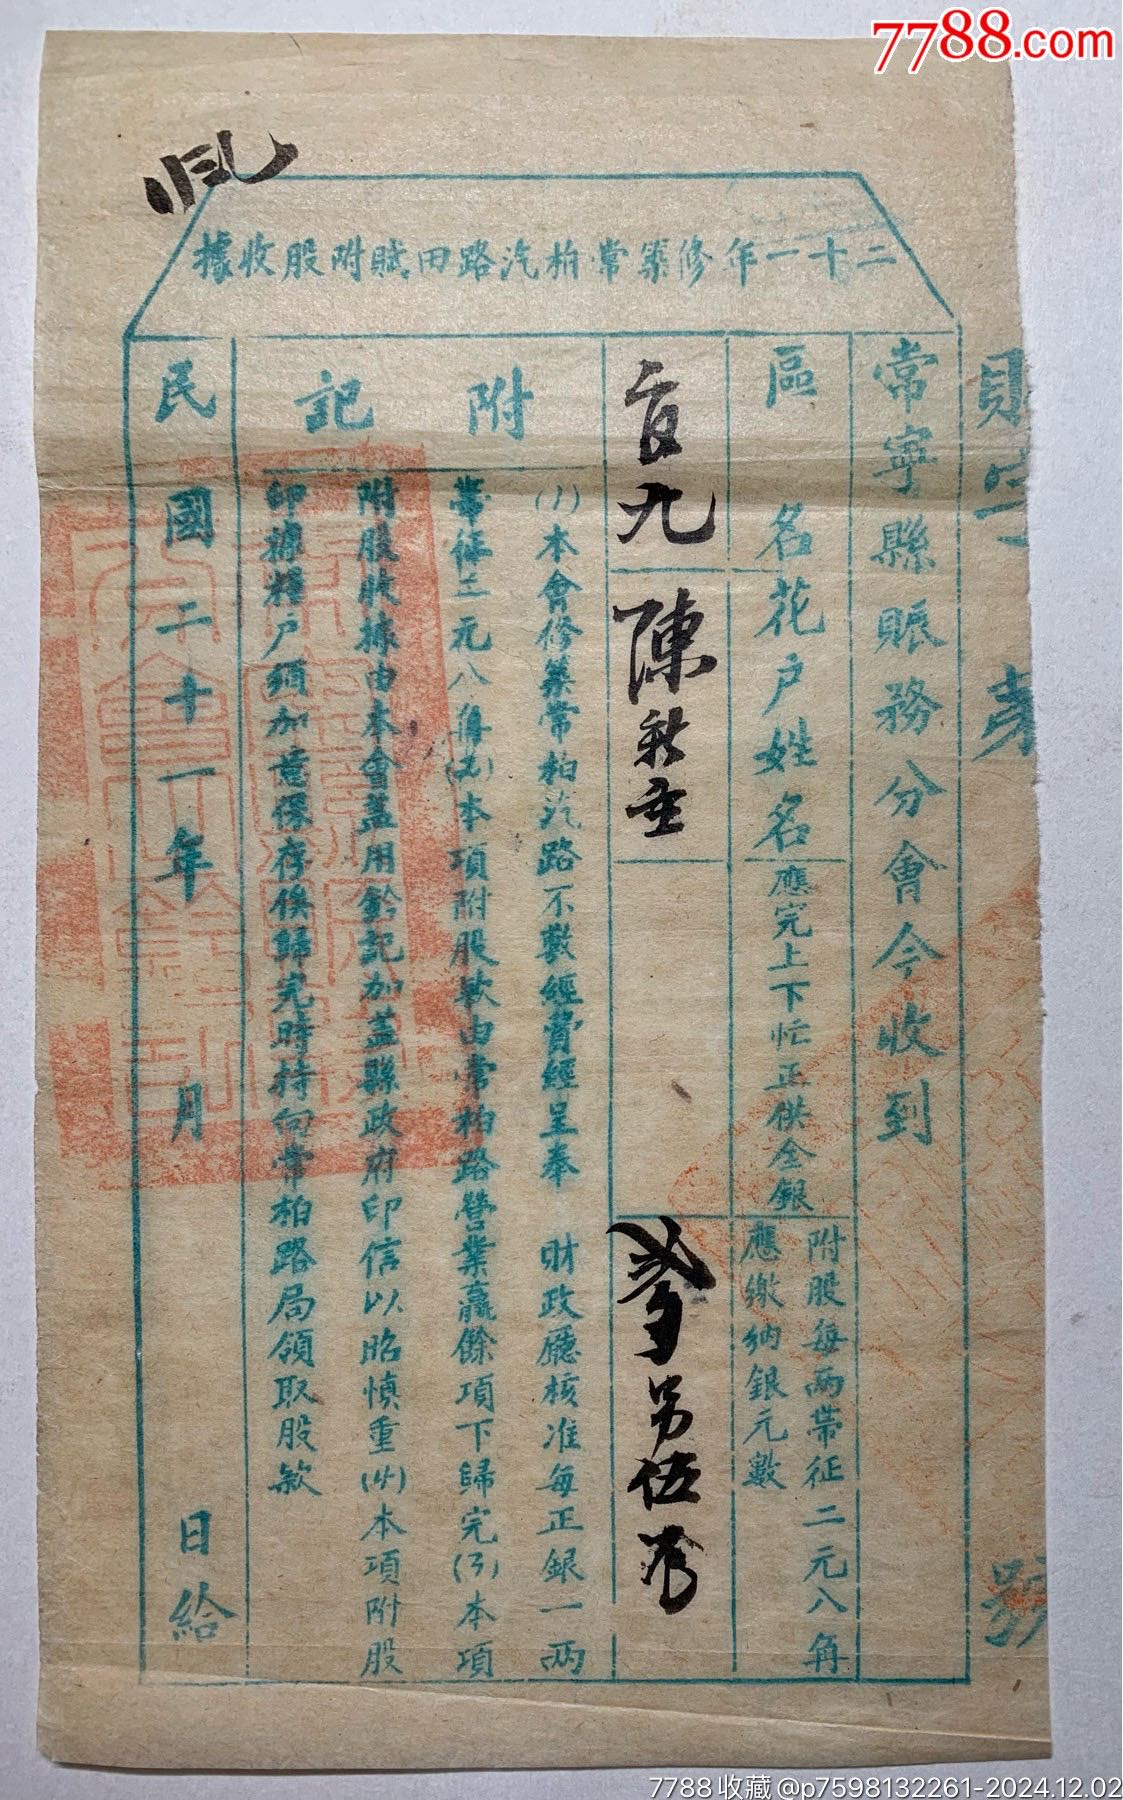 7788.com
二十一年修築常柏汽路田賦附股收據
賑字第號
常寧縣賬務分會今收到
區名
花户姓名
應完上下忙正供全銀
附股每兩帶征二元八角
應繳納銀元數
九
陳秋
伍
附記
(1)本會修築常柏汽路不敷經費經呈奉 財政廳核准每正銀一兩
帶征二元八角(2)本項附股款由常柏路營業贏餘項下歸完(3)本項
附股收據由本會蓋用鈐記加蓋縣政府印信以昭慎重(4)本項附股
印據糧户須加意保存俟歸完時持向常柏路局領取股款
民國二十一年 月 日給
7788收藏@p7598132261-2024.12.02